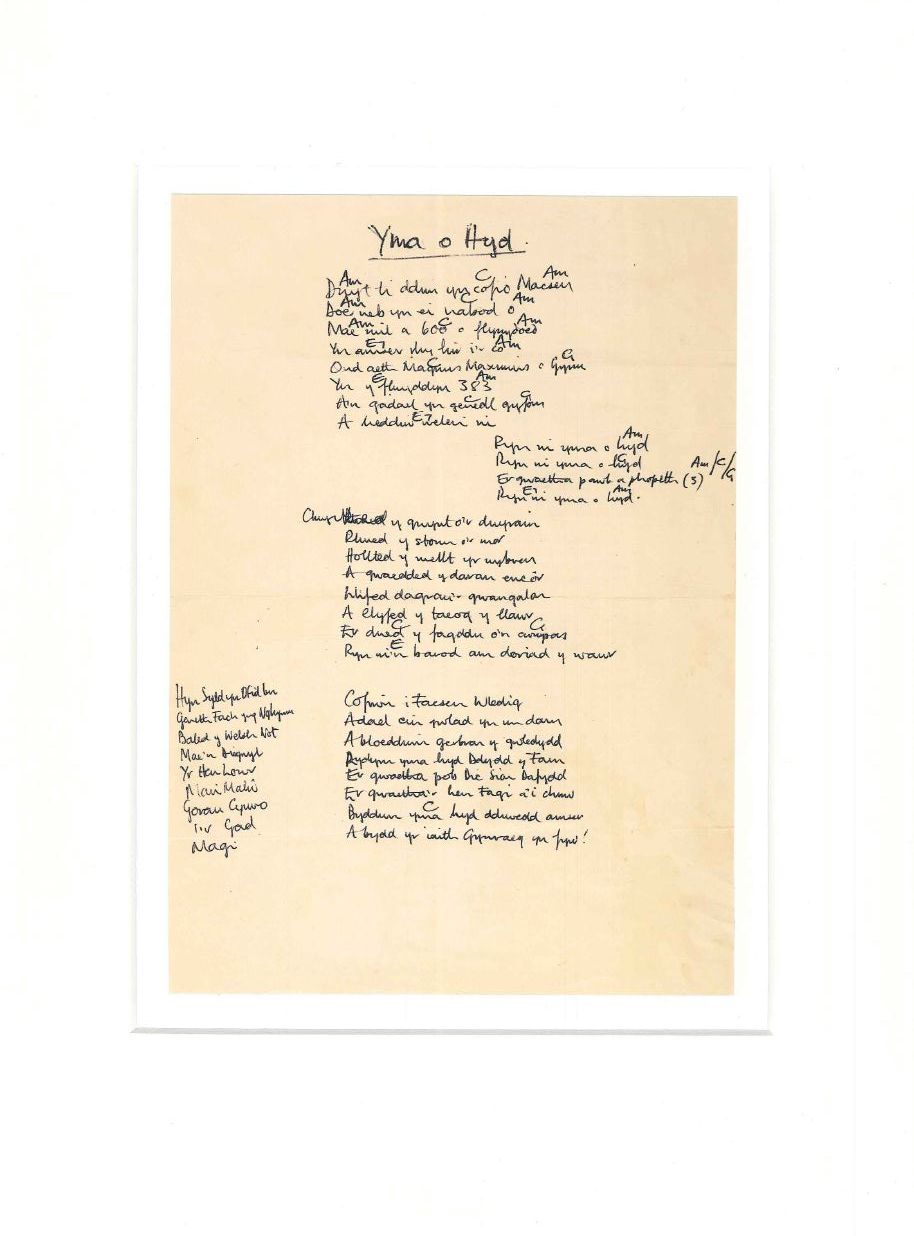 Yma o Hyd.
Am C Am
Dwyt ti ddim yn cofio Macsen
Am C Am
Does neb yn ei nabod o
Am C Am
Mae mil a 600 o flynyddoedd
E7 Am
Yn amser rhy hir i'r co
C G
Ond aeth Magnus Maximus o Gymru
E Am
Yn y flwyddyn 383
C G
A'n gadael yn genedl gyfan
E7
A heddiw weler ni
Am
Ryn ni yma o hyd
G
Ryn ni yma o hyd
Am/C/G
Er gwaetha pawb a phopeth (3)
E7 Am
Ryn ni yma o hyd.
Chwythed y gwynt o'r dwyrain
Rhued y storm o'r mor
Hollted y mellt yr wybren
A gwaedded y daran encôr
Llifed dagrau'r gwangalon
A llyfed y taeog y llawr
C G
Er dued y fagddu o'n cwmpas
E
Ryn ni'n barod am doriad y wawr
Cofiwn i Facsen Wledig
Adael ein gwlad yn un darn
A bloeddiwn gerbron y gwledydd
Rydym yma hyd Ddydd y Farn
Er gwaetha pob Dic Sion Dafydd
Er gwaetha'r hen Fagi a'i chriw
C
Byddwn yma hyd ddiwedd amser
A bydd yr iaith Gymraeg yn fyw!
Hyn Sydd yn Ofid
Geneth Fach yng Nghymru
Baled y Welsh Not
Mae'n Disgwyl
Yr Hen
Mari Malw
Gorau Cymro
I'r Gad
Magi